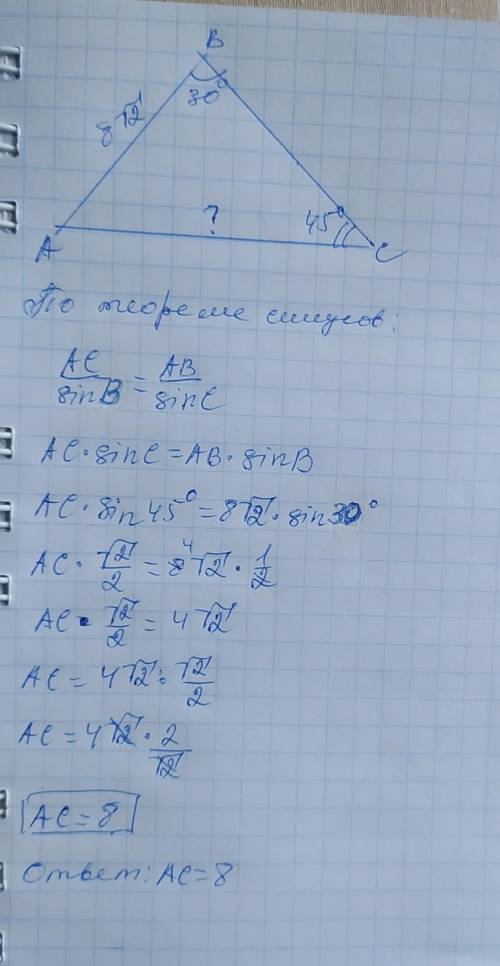 B
8√2
30°
?
45°
A
C
По теореме синусов:
AC/sinB = AB/sinC
AC·sinC=AB·sinB
AC·sin45°=8√2·sin30°
AC·√2/2=8⁴√2·1/2
AC·√2/2=4√2
AC=4√2:√2/2
AC=4√2·2/√2
AC=8
Ответ: AC=8